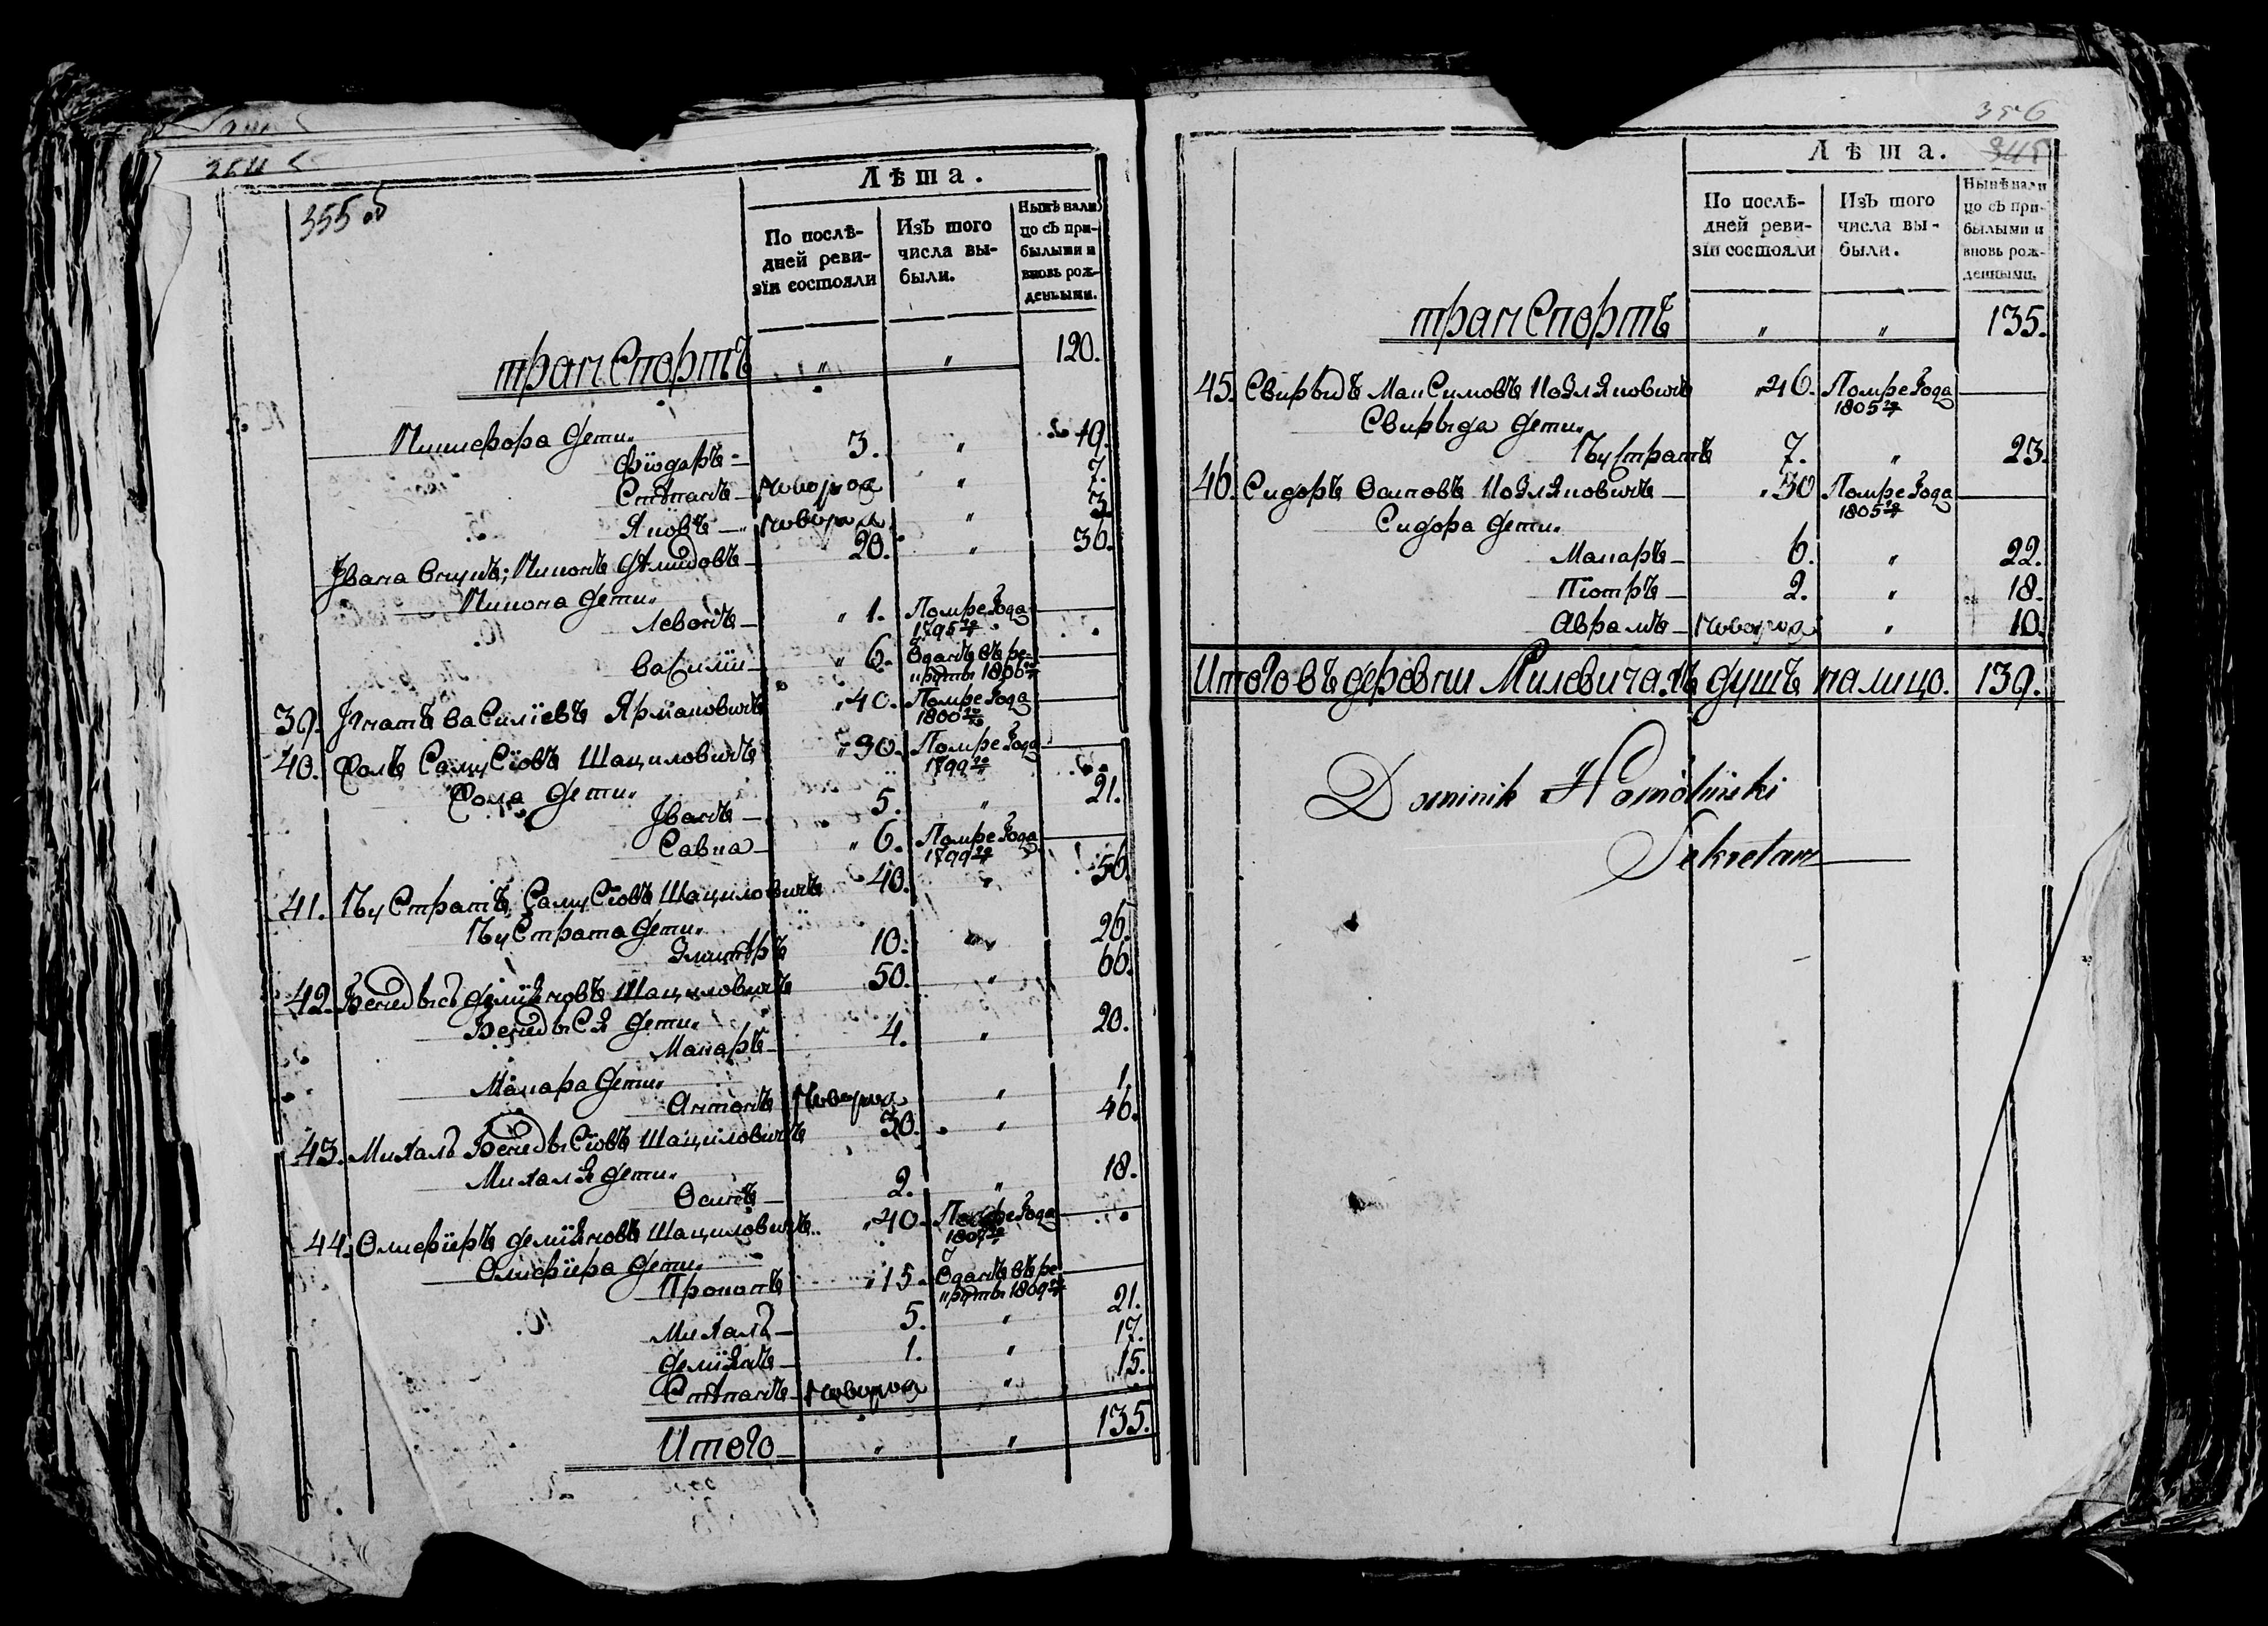 355 об
Лѣта.
По послѣ-
дней реви-
зіи состояли
Изъ того
числа вы-
были.
Нынѣ нали
цо съ при-
былыми и
вновь рож-
денными.
транспортъ „ „ 120.
Никифора дети.
Фїодаръ — 3. „ 19.
Стѣпанъ — новорож „ 7.
Яковъ — новорож „ 3.
Јвана внукъ; Никонъ 20. „ 36.
Никона дети.
Левонъ — „ 1. Помре года
1795го
Василїи — „ 6. Одатъ въ ре-
круты 1806го
39. Јгнатъ Василїевъ Ярмаковичъ „ 40. Помре года
1800го
40. Фомъ СамуСїовъ Шациловичъ „ 30. Помре года
1799го
Фома дети.
Јванъ — 5. „ 21.
Савка — „ 6. Помре года
1799го
41. ПуСтратъ СамуСїовъ Шациловичъ 40. „ 56.
ПуСтрата дети.
Змитръ 10. „ 26.
42. Бенедысь демїяновъ Шациловичъ 50. „ 66.
БенедыСя дети.
Макаръ — 4. „ 20.
Макара дети.
Антонъ новорож „ 1.
43. Михаль БенедыСїовъ Шациловичъ 30. „ 46.
Михаля дети.
Осипъ — 2. „ 18.
44. Олисфїеръ демїяновъ Шациловичъ „ 40. Помре года
Олисфїера дети.
Прокопъ „ 15. Одатъ въ ре-
круты 1809го
Михаль — 5. „ 21.
демїянъ — 1. „ 17.
Стѣпанъ — новорож „ 15.
Итого — „ „ 135.
356
345
Лѣта.
По послѣ-
дней реви-
зіи состояли
Изъ того
числа вы-
были.
Нынѣ нали
цо съ при-
былыми и
вновь рож-
денными.
транспортъ „ „ 135.
45. Свирыдъ МакСимовъ Козляковичъ „ 46. Помре года
1805го
Свирыда дети.
ПуСтратъ 7. „ 23.
46. Сидоръ Осиповъ Козляковичъ — „ 30 Помре года
1805го
Сидора дети.
Макаръ — 6. „ 22.
Пїотръ — 2. „ 18.
Аврамъ — новорож „ 10.
Итого въ деревни Милевичахъ душъ налицо. 139.
Dominik
Sekretarz